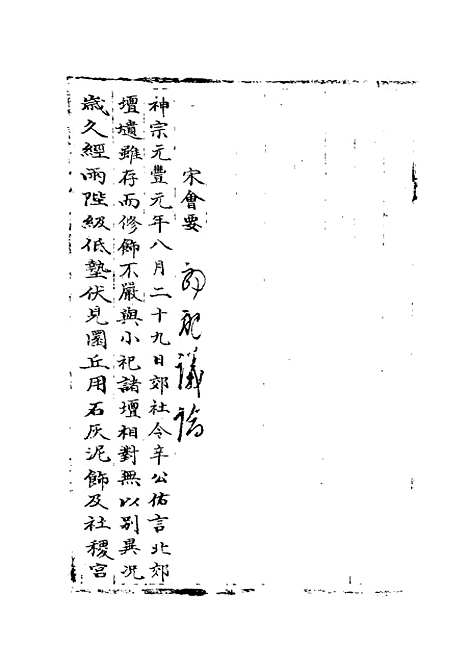 宋會要 郊祀議論
神宗元豐元年八月二十九日郊社令辛公佑言北郊
壇壝雖存而修飾不嚴與小祀諸壇相對無以别異況
歲久經雨陛級低墊伏見圜丘用石灰泥飾及社稷宮